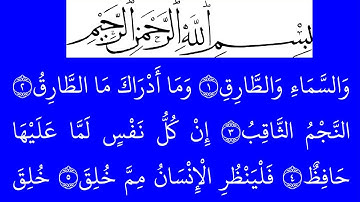 بِسْمِ اللَّهِ الرَّحْمَٰنِ الرَّحِيمِ
وَالسَّمَاءِ وَالطَّارِقِ ۝١ وَمَا أَدْرَاكَ مَا الطَّارِقُ ۝٢
النَّجْمُ الثَّاقِبُ ۝٣ إِنْ كُلُّ نَفْسٍ لَمَّا عَلَيْهَا
حَافِظٌ ۝٤ فَلْيَنْظُرِ الْإِنْسَانُ مِمَّ خُلِقَ ۝٥ خُلِقَ